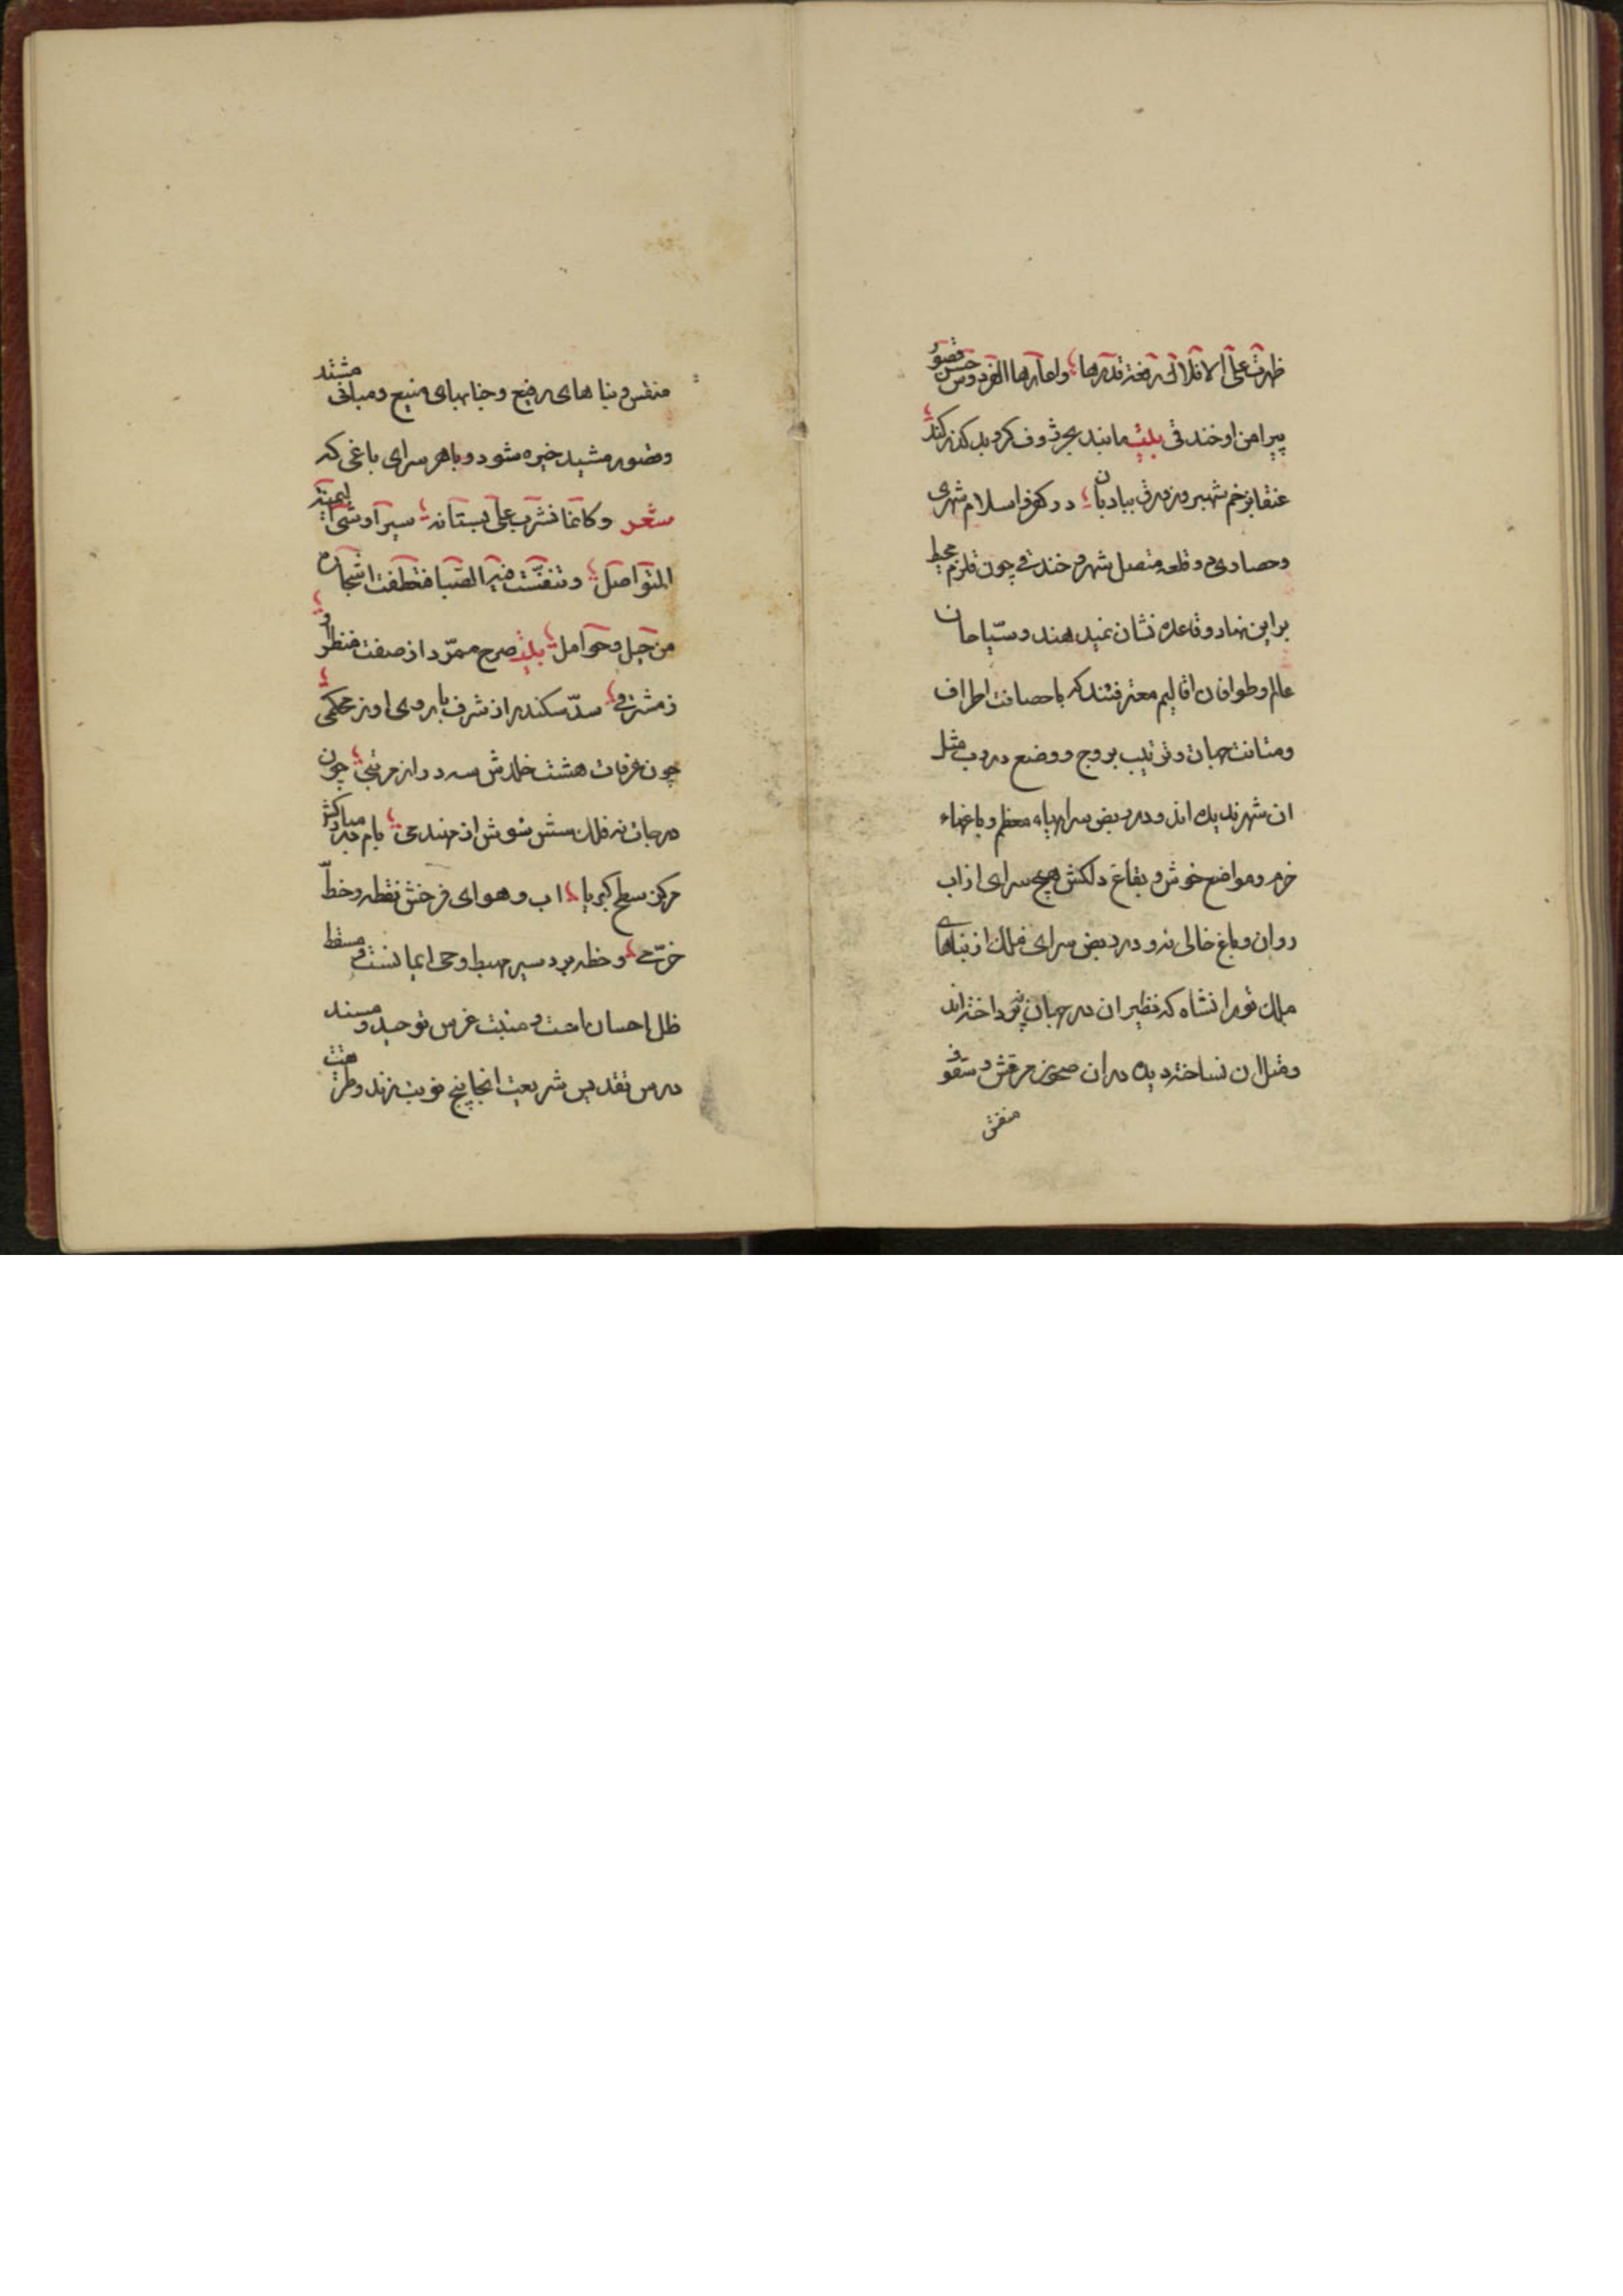 ظهرت علی الافلاک رفعة قدرها واعارها الفردوس حسن قصور
پیرامن او خندقی بلیت مانند بحر ژوف کرو بد کذر کند
عنقا بزخم شهپر وزورق ببادبان در کفر و اسلام شهری
وحصاری و قلعه متصل شهر و خندقی چون قلزم محیط
براین نهاد و قاعده نشان نمیدهند و سیّاحان
عالم و طوافان اقالیم معترفند که با حصانت اطراف
ومتانت جهات و ترتیب بروج و وضع دروب مثل
ان شهر ندیده اند و در ربض سراهاء معظم و باغهاء
خرم و مواضع خوش و بقاع دلکش هیچ سرای از اب
روان و باغ خالی نه و در ربض سرای فلک از بناهای
ملک تورانشاه که نظیر ان در جهان نپرداخته اند
ومثل ان نساخته دیده در ان صحون مرقش و سقوف
منقش
منقش و بناهای رفیع و جنابهای منیع ومبانی مشتد
وقصور مشید خیره شود و با هر سرای باغی که
شعر وکانما نشرت علی بستانه سیراء وشی الیمنة
المتواصل وتنفست فیه الصبا فتعطفت اشجاره
من حیل و حوامل بیت صرح ممرد از صفت منظر او
ز مشرفی سدّ سکندر از شرف باروی او ز محکمی
چون غرفات هشت خلدش سه در از مرتبی چون
درجات نه فلک شش سوش از مهندمی بام مبارکش
مرکز سطح کبریا اب و هوای فرخش نقطه و خطّ
خرّمی و خطه بردسیر مهبط وحی ایمانست و مسقط
ظل احسان امت و منبت غرس توحید و مسند
درس تقدیس شریعت انجا پنج نوبت زند وطر